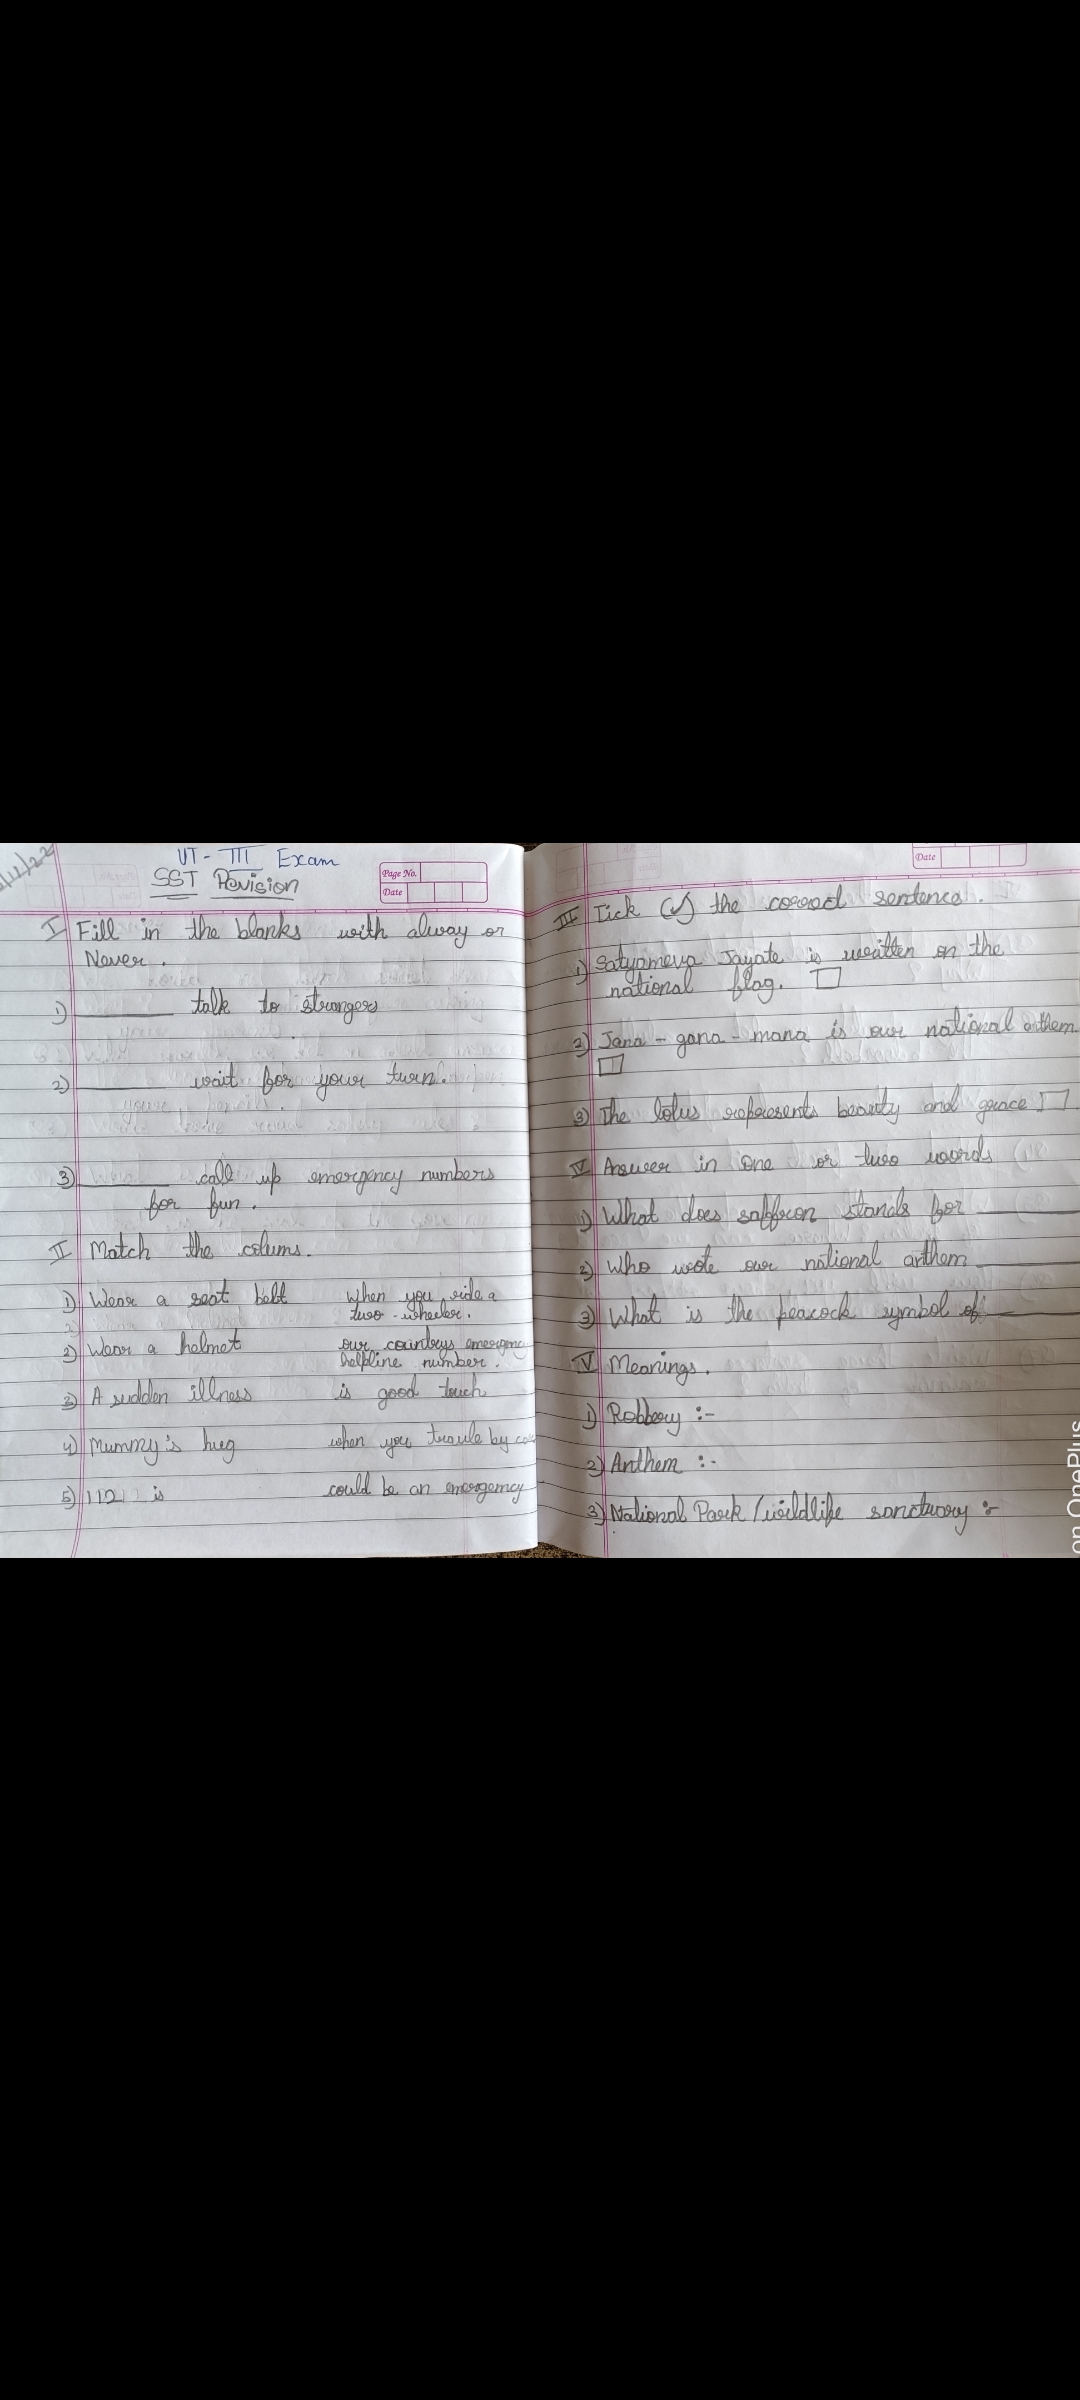 UT - III Exam
SST Revision
Page No.
Date
I Fill in the blanks with alway or
Never.
1) ________ talk to strangers
2) ________ wait for your turn.
3) ________ call up emergency numbers
for fun.
II Match the colums.
1) Wear a seat belt when you ride a
two-wheeler.
2) Wear a helmet our countrys emergency
helpline number.
3) A sudden illness is good touch
4) Mummy's hug when you travle by
5) 112 is could be an emergency
Date
III Tick (✓) the correct sentence.
1) Satyameva Jayate is written on the
national flag. □
2) Jana - gana - mana is our national
□
3) The lotus represents beauty and grace □.
IV Answer in one or two words
1) What does saffron stands for ________
2) Who wrote our national anthem ________
3) What is the peacock symbol of ________
V Meanings.
1) Robbery :-
2) Anthem :-
3) National Park / wildlife sanctuary :-
on OnePlus